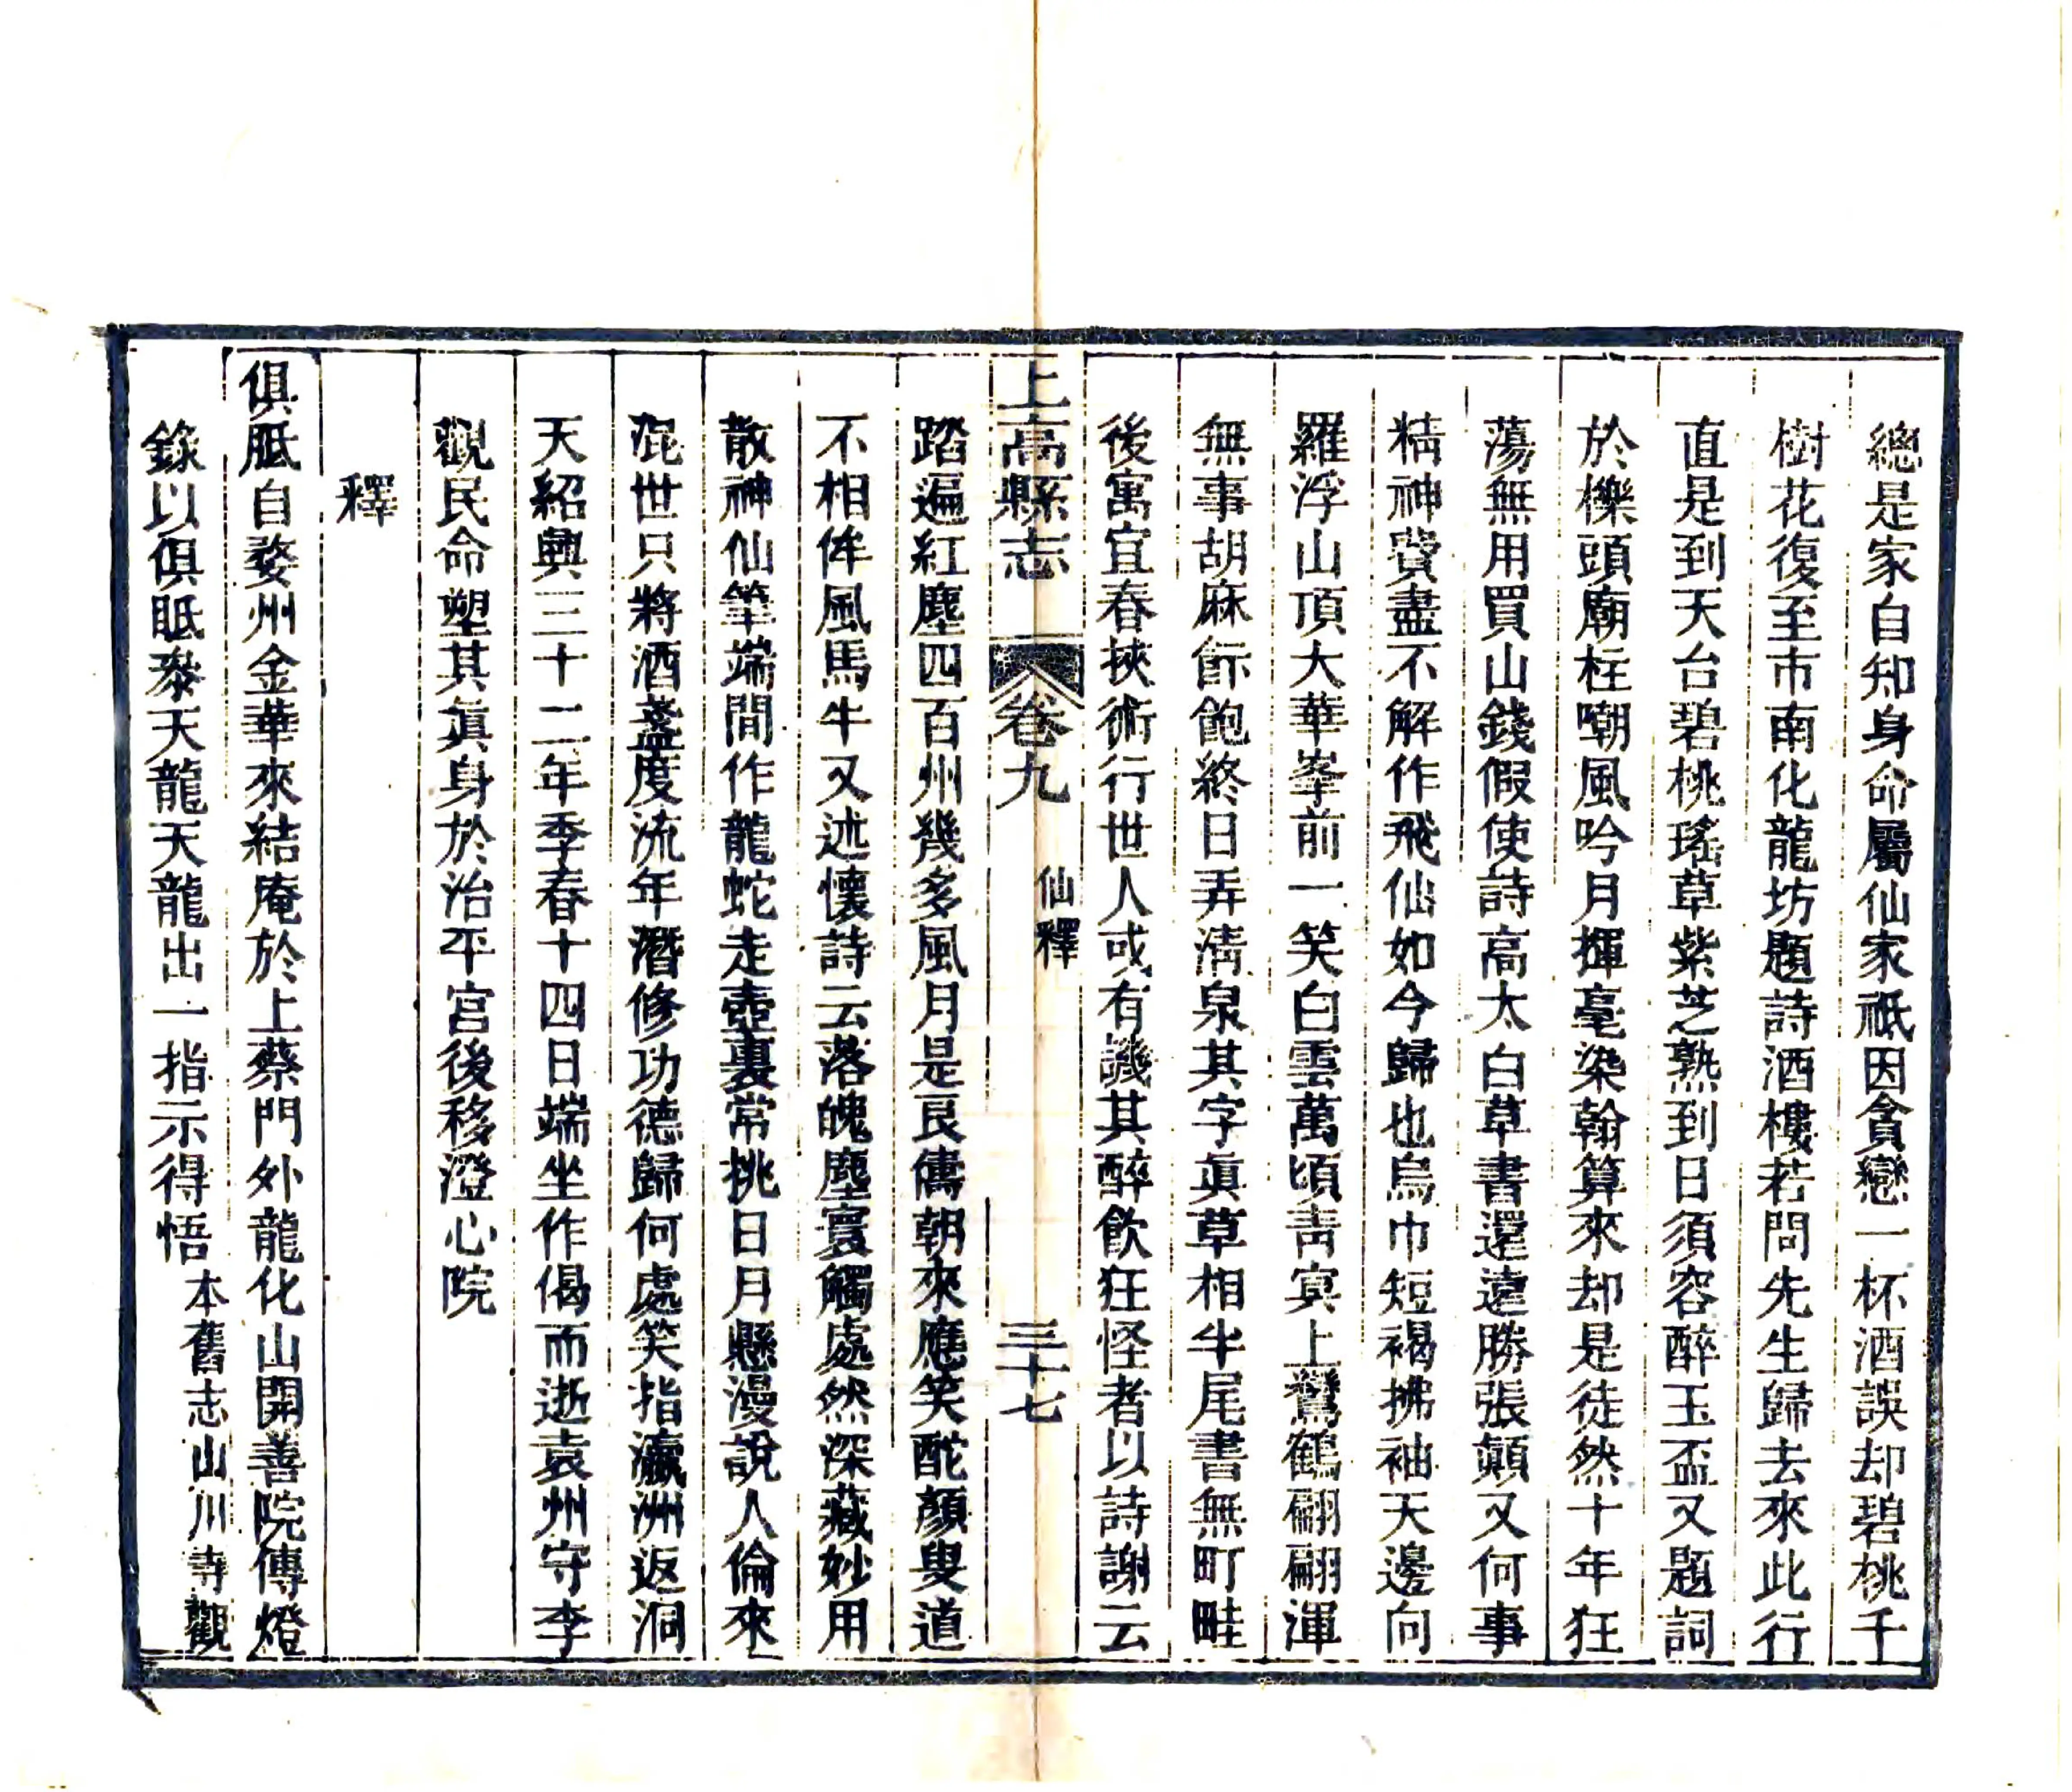 總是家自知身命屬仙家祇因貪戀一杯酒誤却碧桃千
樹花復至市南化龍坊題詩酒樓若問先生歸去來此行
直是到天台碧桃瑤草紫芝熟到日須容醉玉盃又題詞
於櫟頭廟柱嘲風吟月揮毫染翰算來却是徒然十年狂
蕩無用買山錢假使詩高太白草書還遠勝張顛又何事
精神費盡不解作飛仙如今歸也烏巾短褐拂袖天邊向
羅浮山頂大華峯前一笑白雲萬頃青寅上鸞鶴翩翩渾
無事胡麻飯飽終日弄清泉其字眞草相半尾書無町畦
後寓宜春挾術行世人或有譏其醉飲狂怪者以詩謝云
上高縣志
卷九
仙釋
三十七
踏遍紅塵四百州幾多風月是良儔朝來應笑酡顏叟道
不相侔風馬牛又述懷詩云落魄塵寰觸處然深藏妙用
散神仙筆端間作龍蛇走壺裏常挑日月懸漫說人倫來
混世只將酒盞度流年潛修功德歸何處笑指瀛洲返洞
天紹興三十二年季春十四日端坐作偈而逝袁州守李
觀民命塑其眞身於治平宮後移澄心院
釋
俱胝自婺州金華來結庵於上蔡門外龍化山開善院傳燈
錄以俱胝叅天龍天龍出一指示得悟
本舊志山川寺觀